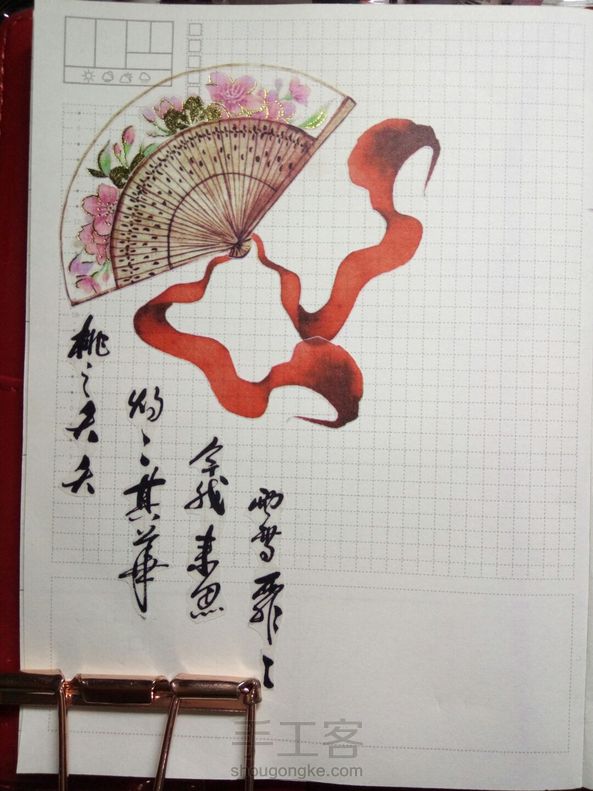 桃之夭夭
灼々其華
今我来思
雨雪霏々
手工客
shougongke.com